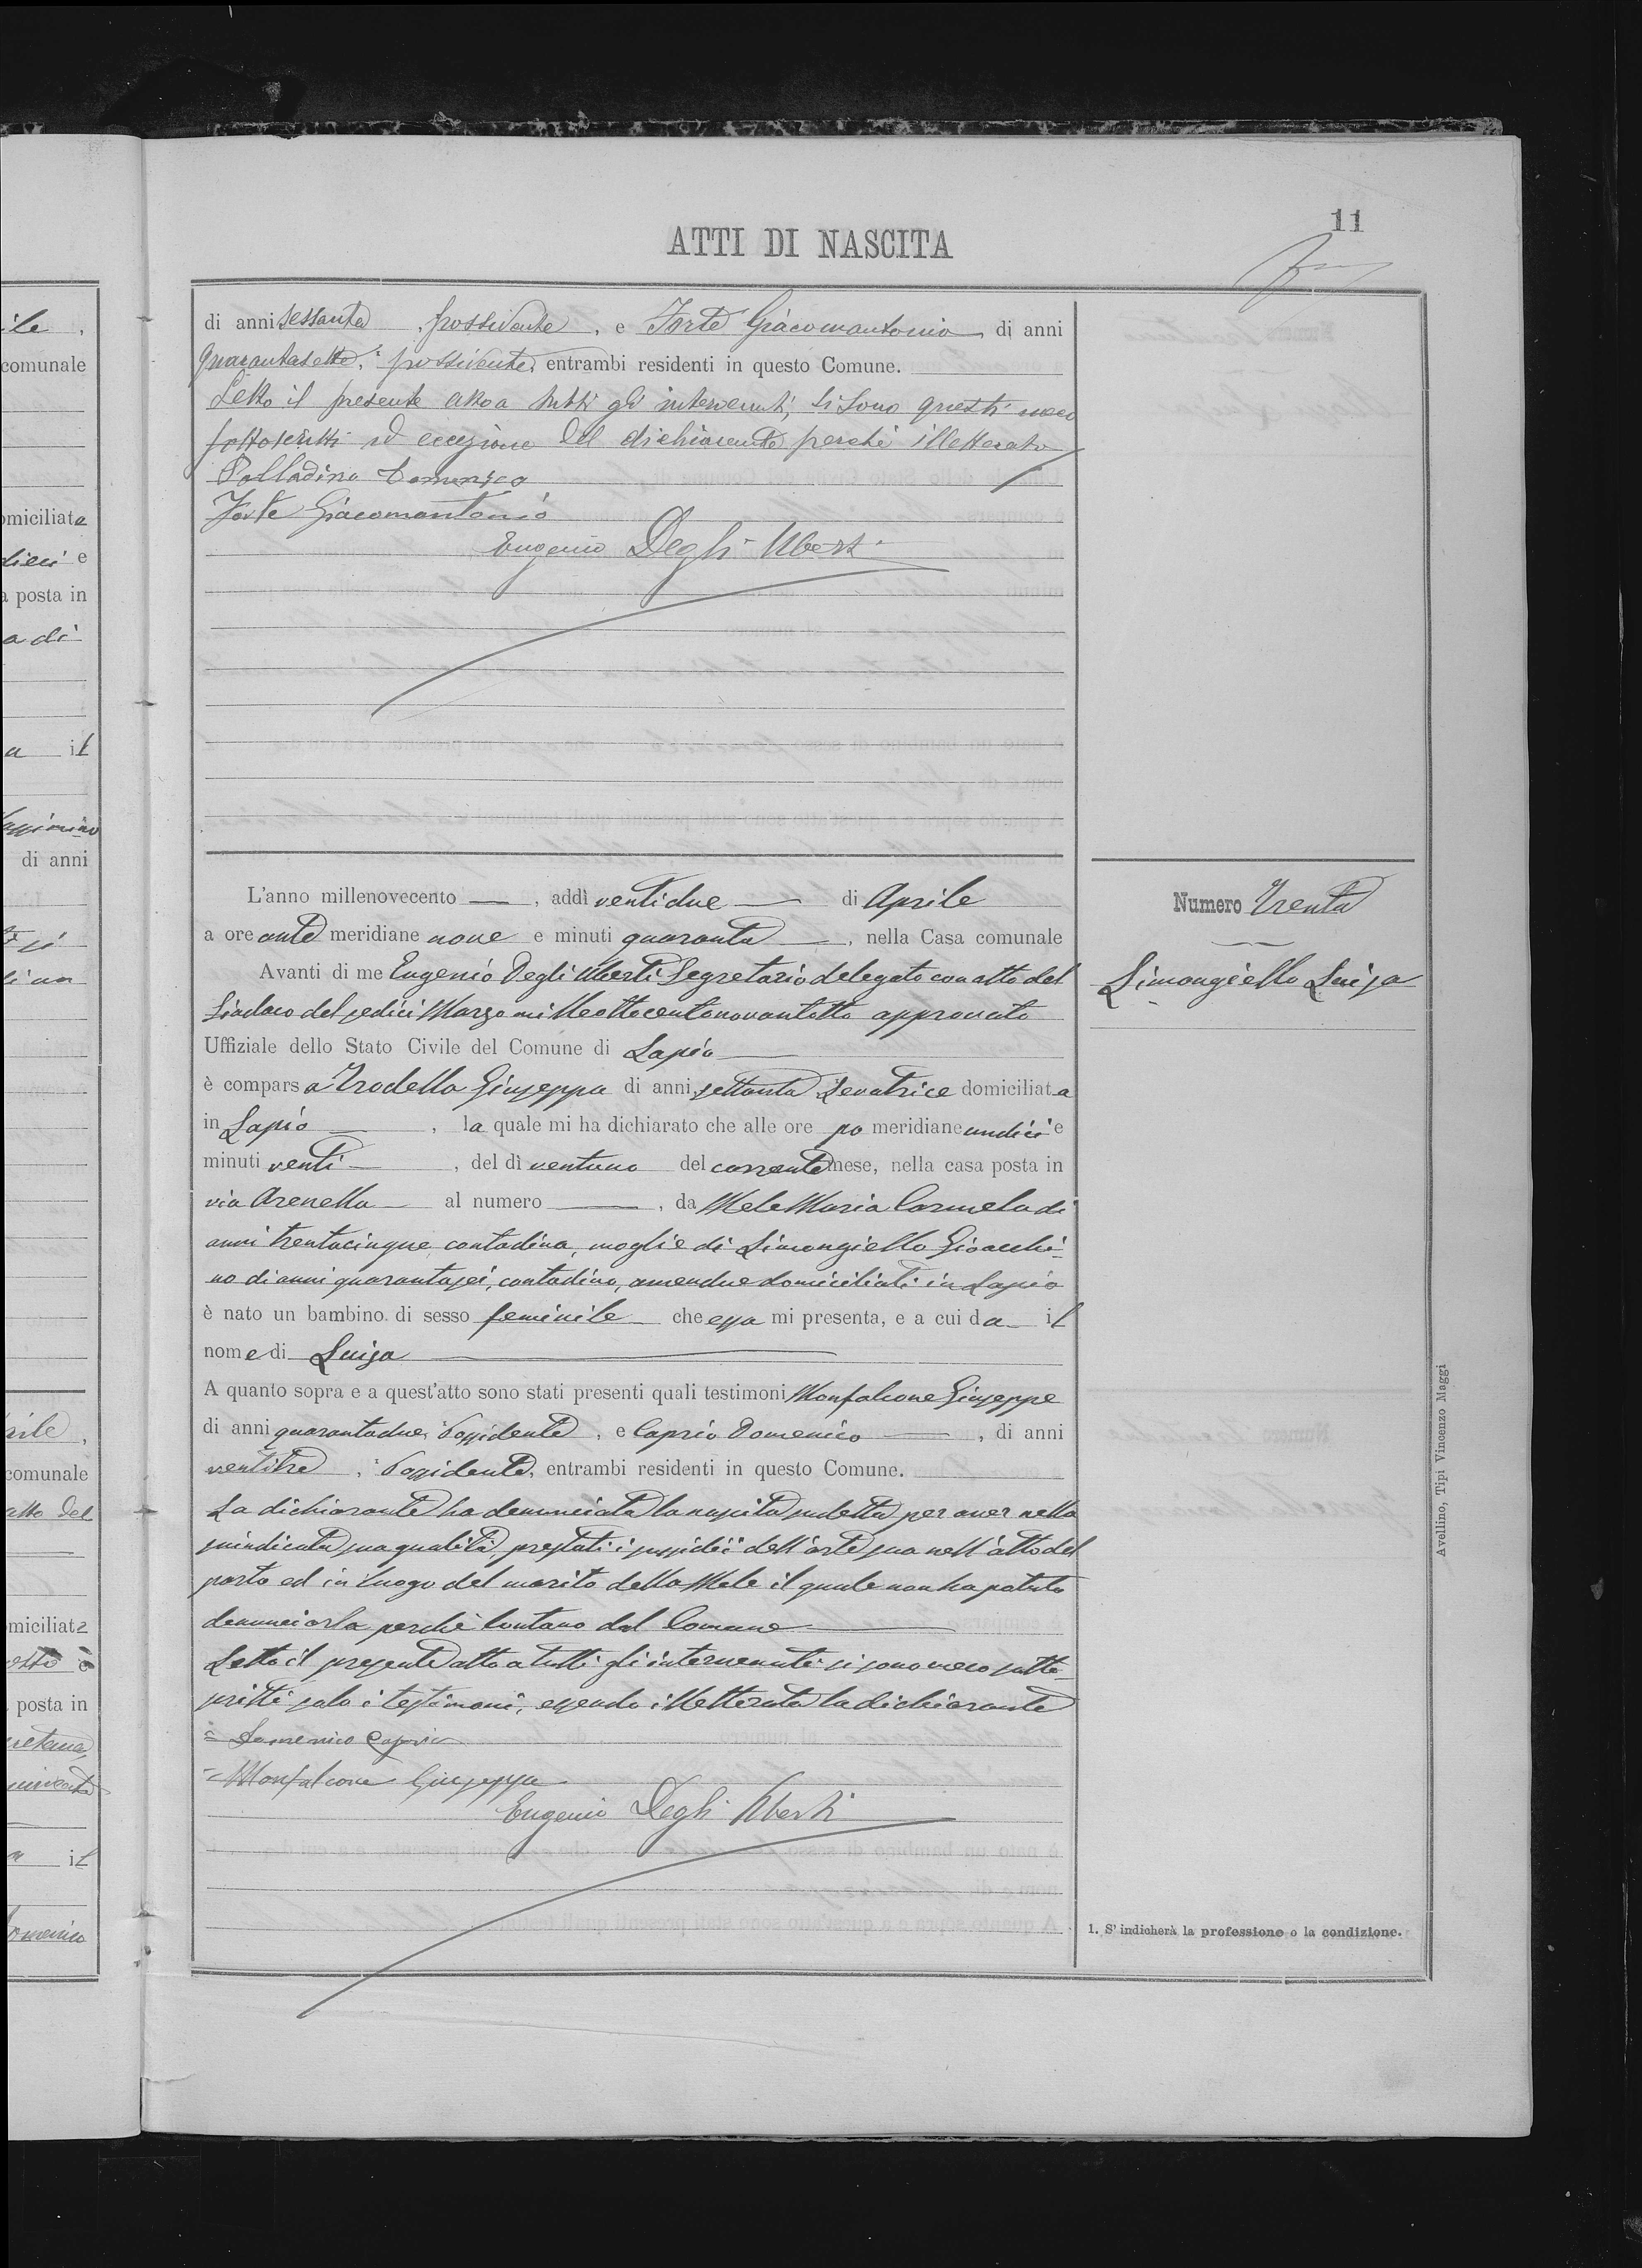 11
ATTI DI NASCITA
di anni sessanta, possidente, e Forte Giacomantonio, di anni
quarantasette, possidente, entrambi residenti in questo Comune.
Letto il presente atto a tutti gli intervenuti, si sono questi meco
sottoscritti ad eccezione del dichiarante perché illetterato
Palladino Domenico
Forte Giacomantonio
Eugenio Degli Uberti
L'anno millenovecento —, addì ventidue — di Aprile
a ore ante meridiane nove e minuti quaranta —, nella Casa comunale
Avanti di me Eugenio Degli Uberti Segretario delegato con atto del
Sindaco del sedici Marzo milleottocentonovantotto approvato
Uffiziale dello Stato Civile del Comune di Lapio —
è comparsa Trodella Giuseppa di anni settanta Levatrice domiciliata
in Lapio —, la quale mi ha dichiarato che alle ore po meridiane undici e
minuti venti —, del dì ventuno del corrente mese, nella casa posta in
via Arenella — al numero —, da Mele Maria Carmela di
anni trentacinque, contadina, moglie di Limongiello Gioacchi-
no di anni quarantasei, contadino, amendue domiciliati in Lapio
è nato un bambino di sesso feminile — che essa mi presenta, e a cui da — il
nome di Luisa —
A quanto sopra e a quest'atto sono stati presenti quali testimoni Monfalcone Giuseppe
di anni quarantadue, Possidente, e Caprio Domenico —, di anni
ventitre, Possidente, entrambi residenti in questo Comune.
La dichiarante ha denunciata la nascita sudetta per aver nella
suindicata sua qualità, prestati i sussidii dell'arte sua nell'atto del
parto ed in luogo del marito della Mele il quale non ha potuto
denunciarla perché lontano dal Comune —
Letto il presente atto a tutti gli intervenuti si sono meco sotto-
scritti solo i testimoni, essendo illetterata la dichiarante
= Domenico Caprio
= Monfalcone Giuseppe
Eugenio Degli Uberti
Numero Trenta
Limongiello Luisa
1. S' indicherà la professione o la condizione.
Avellino, Tipi Vincenzo Maggi
ile,
comunale
omiciliata
dieci e
a posta in
a di
a il
di anni
comunale
atto del
omiciliata
posta in
il